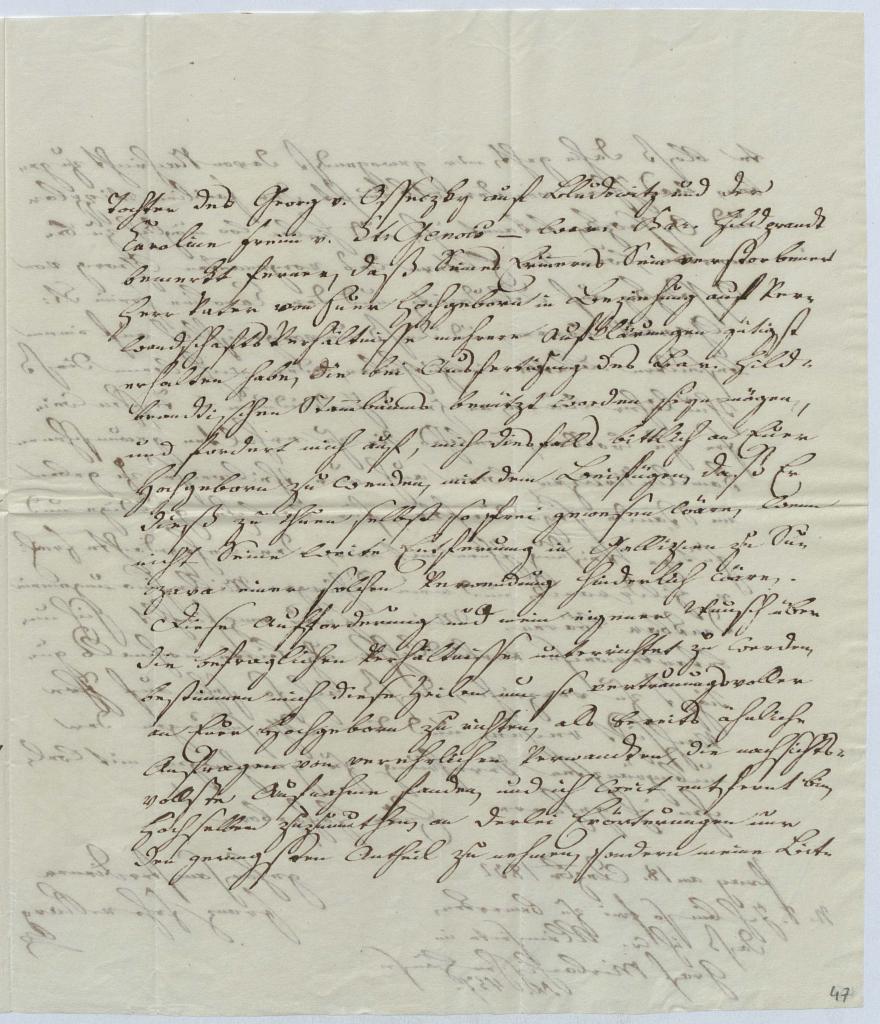 Tochter des Georg v. Osseczky auf Bludowitz und der
Karoline Freiin v. St. Genois – Baron Hildprandt
bemerkt ferner, daß Seines Erinnerns Sein verstorbener
Herr Vater von Euer Hochgeborn in Beziehung auf Ver-
wandschafts Verhältnisse mehrere Aufklärungen gütigst
erhalten habe, die bei Ausfertigung des Bar. Hild-
brandtischen Stammbaums benützt worden seyn mögen,
und fordert mich auf, mich diesfalls bittlich an Euer
Hochgeborn zu wenden, mit dem Beifügen, daß Er
dieß zu thuen selbst so frei gewesen wäre, wenn
nicht Seine weite Entfernung in Gallizien zu Su-
czava einer solchen Verwendung hinderlich wäre.
Diese Aufforderung und mein eigener Wunsch über
die befraglichen Verhältnisse unterrichtet zu werden,
bestimmen mich diese Zeilen um so vertrauungsvoller
an Euer Hochgeborn zu richten, als bereits ähnliche
Anfragen von verehrlichen Verwandten, die nachsichts-
vollste Aufnahme fanden, und ich weit entfernt bin,
Hochselben zuzumuthen, an derlei Erörterungen nur
den geringsten Antheil zu nehmen, sondern meine Bitte
47